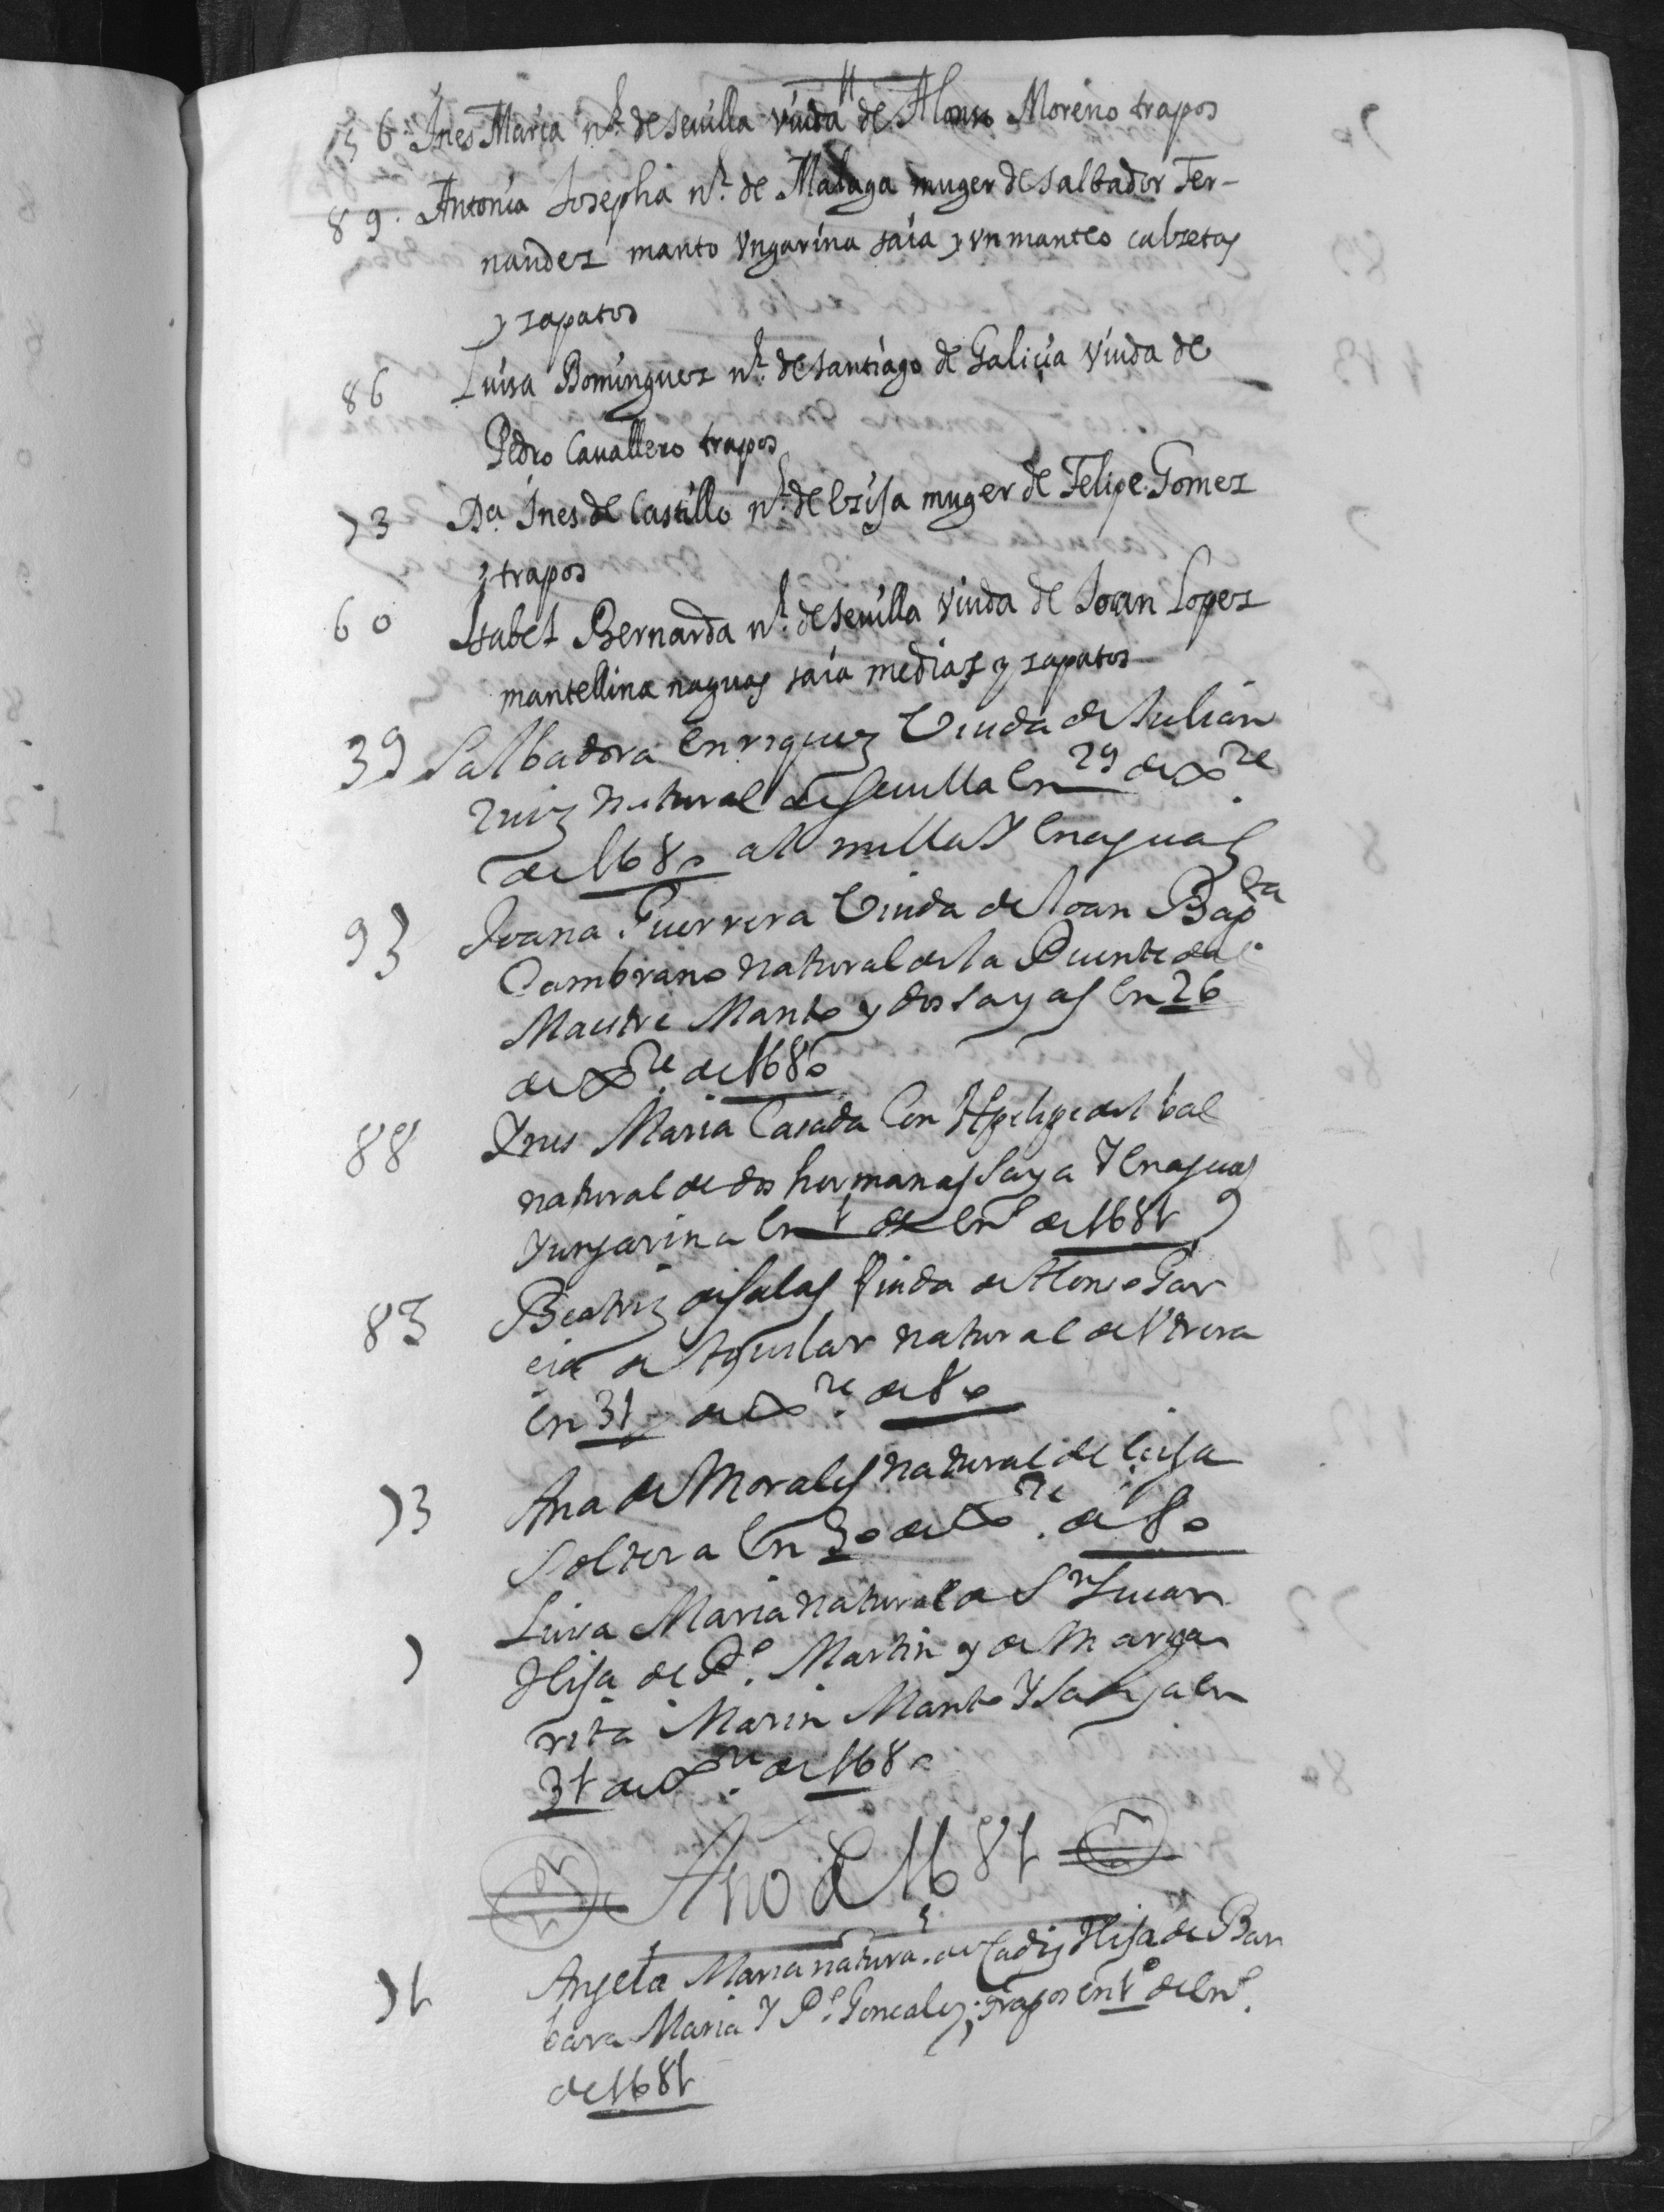 56. Ines Maria n.l de Seuilla viuda de Alonso Moreno trapos
89. Antonia Josepha n.l de Malaga muger de Salbador Fer-
nandez manto Vngarina saia y vn manteo calzetas
y zapatos
86 Luisa Dominguez n.l de Santiago de Galiçia viuda de
Pedro Cauallero trapos
73 Da. Ines de Castillo n.l de Ezija muger de Felipe Gomez
trapos
60 Isabel Bernarda n.l de Seuilla viuda de Joan Lopez
mantellina naguas saia medias y zapatos
39 Salbadora Enrriquez Viuda de Julian
Ruiz natural de Seuilla En 29 de Xre
de 1680 al milla Y Enaguas
93 Joana Guerrera Viuda de Joan Bapta
Cambrano natural de la Puente de
Maestre Manto y dos sayas En 26
de Xre de 1680
88 Ynes Maria Casada Con Phelipe del bal
natural de dos hermanas Saya Y Enaguas
Y ungarina En 1 de Eno de 1681
83 Beatriz de Salas Viuda de Alonso Gar
cia de Aguilar natural de Vtrera
En 31 de Xre de 80
73 Ana de Morales natural de Eçija
Soltera En 30 de Xre de 80
7 Luisa Maria natural de Sn Lucar
Hija de Po. Martin y de Marga
rita Marin Manto Y Saya En
31 de Xre de 1680
Año de 1681
71 Angela Maria natural de Cadiz Hija de Bar
bara Maria Y Po. Goncalez; trapos En 1o de Eno.
de 1681